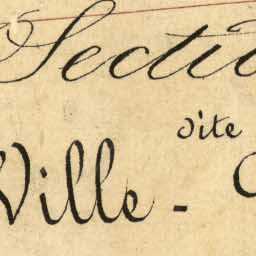 Section
dite
Ville -